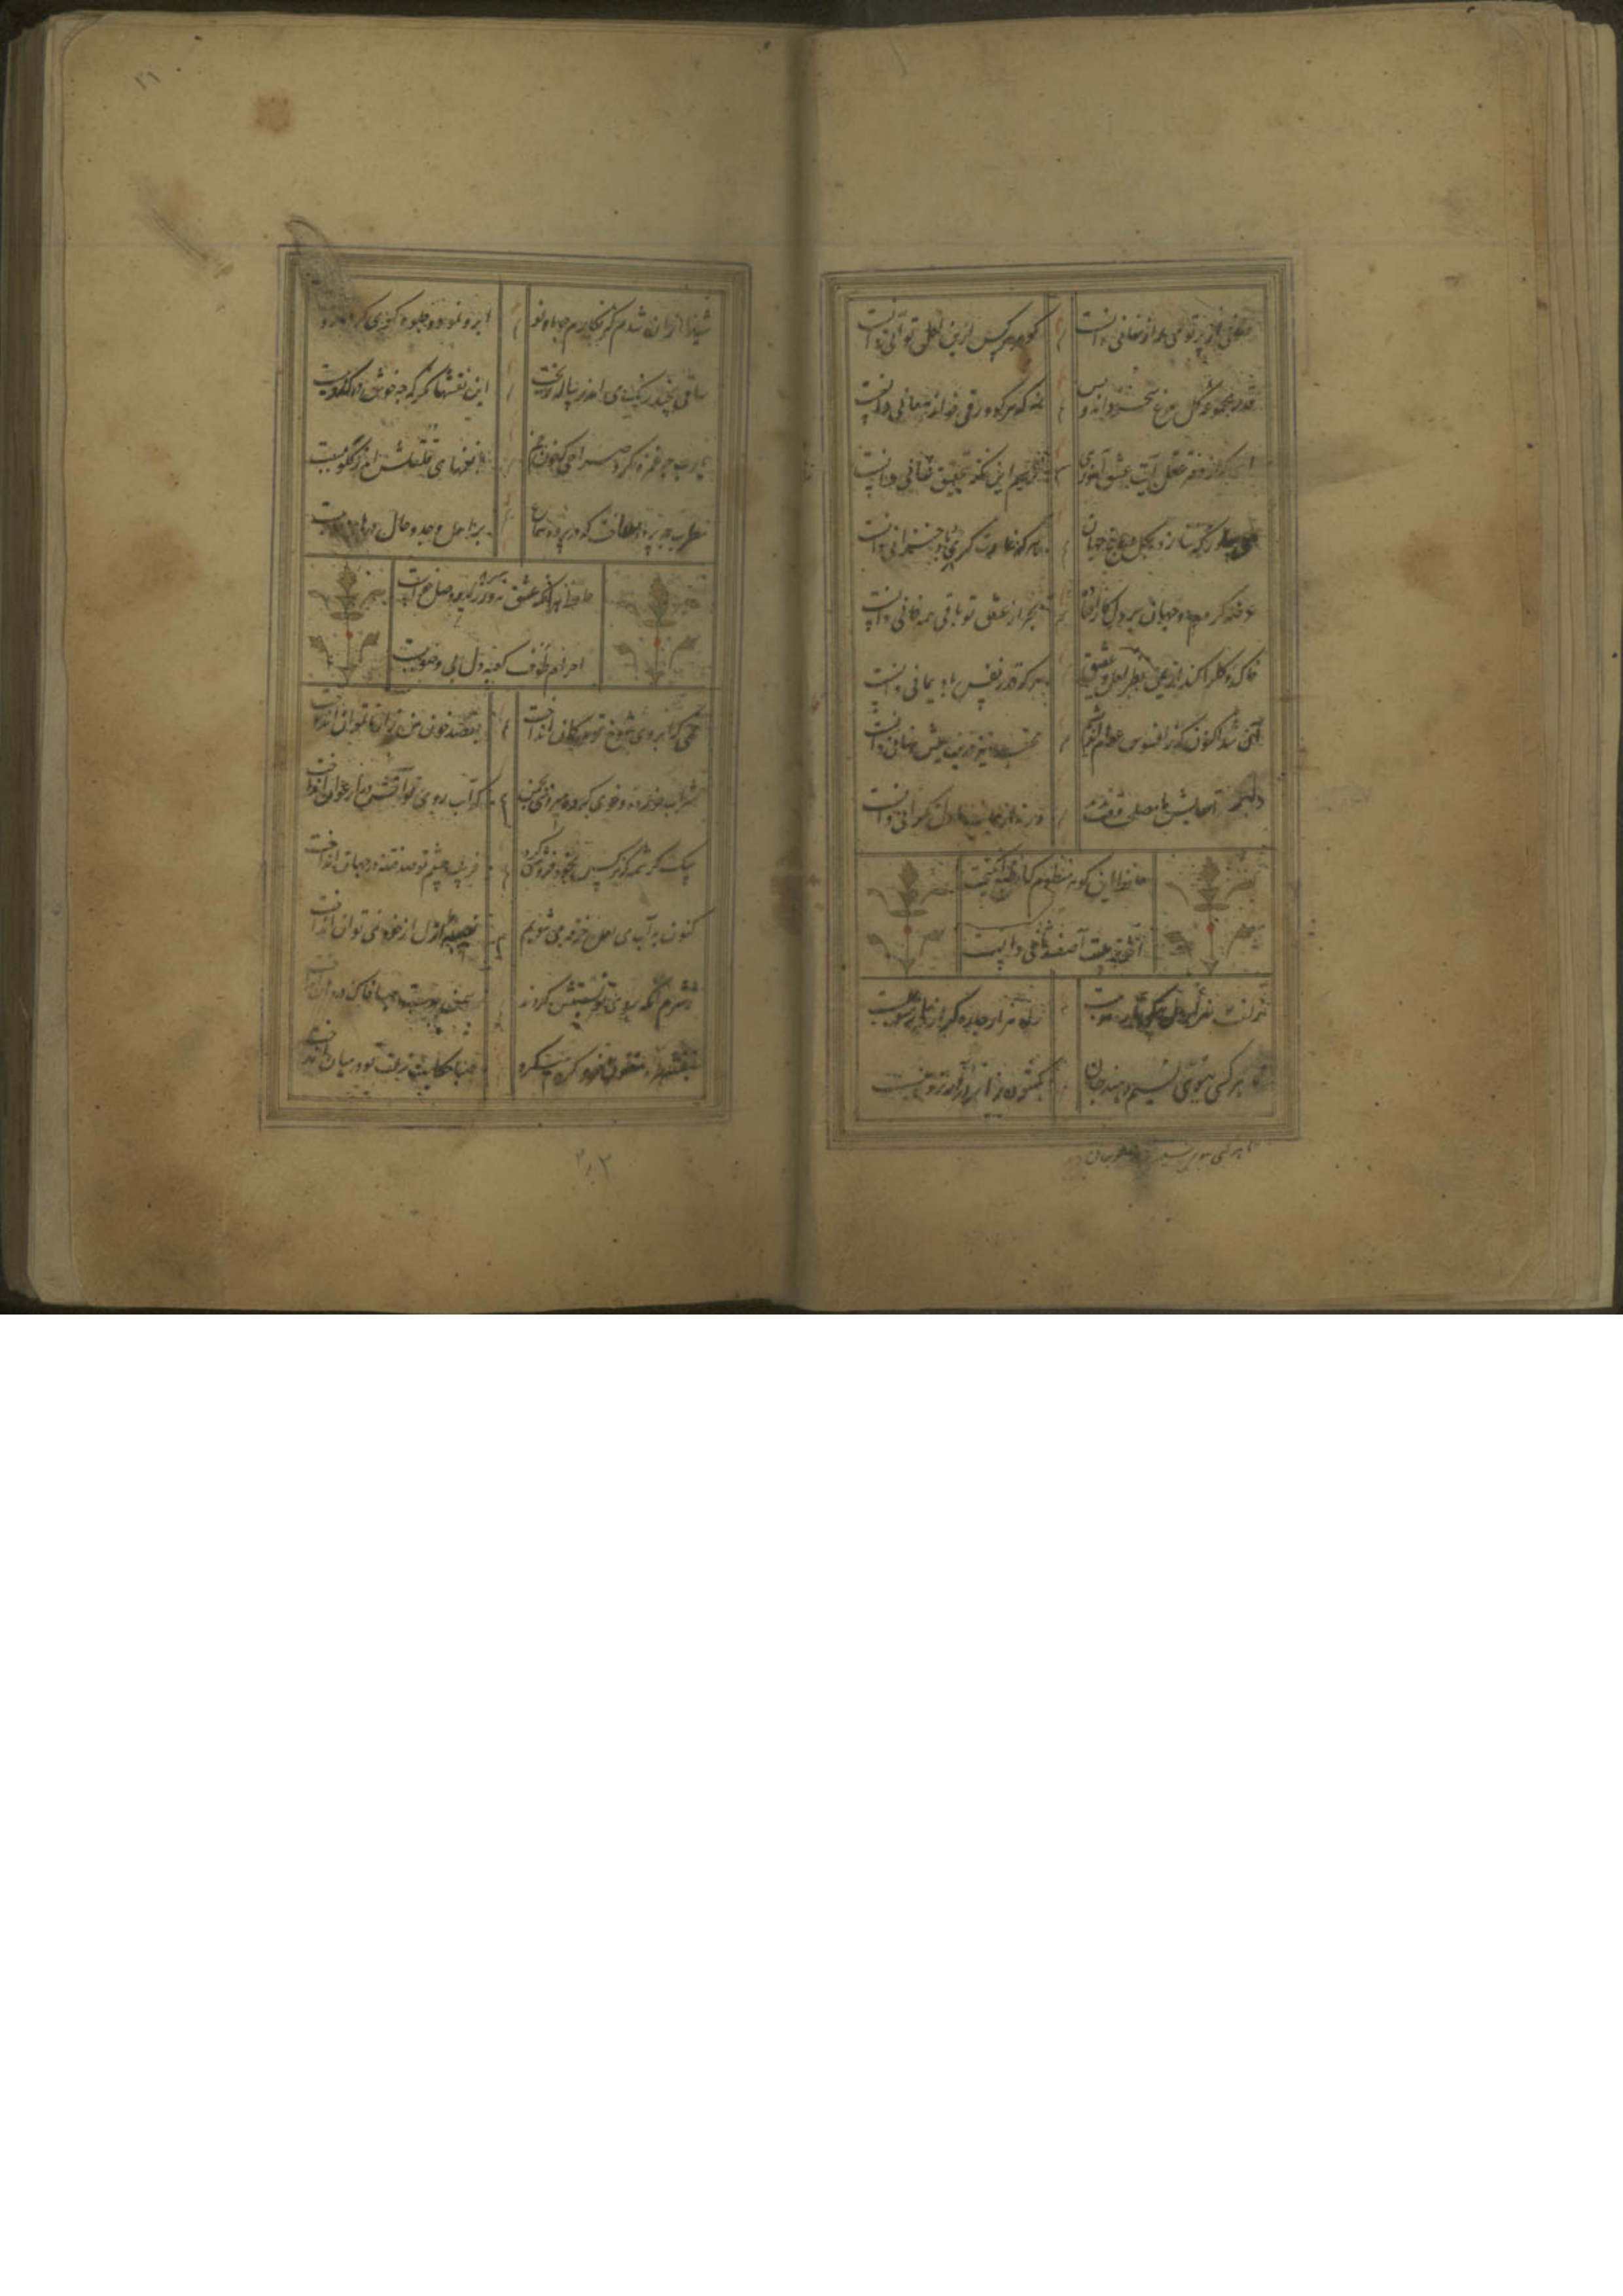 صوفی از پرتو می راز نهانی دانست گوهر هر کس ازین لعل توانی دانست
قدر مجموعه گل مرغ سحر داند و بس نه که هر کو ورقی خواند معانی دانست
ای که از دفتر عقل آیت عشق آموزی این نکته بتحقیق دانست
می بیاور که ننازد بگل باغ جهان هر که غارت گری باد خزانی دانست
عرضه کردم دو جهان بر دل کار افتاده بجز از عشق تو باقی همه فانی دانست
خاک و گل را کند از یمن نظر لعل و عقیق هر که قدر نفس باد یمانی دانست
آن شد اکنون که ز افسوس عوام اندیشم محتسب نیز ازین عیش نهانی دانست
دلبر آسایش ما مصلحت وقت ورنه از جانب ما دل نگرانی دانست
حافظ این گوهر منظوم که از طبع انگیخت
اثر تربیت آصف ثانی دانست
زلفت هزار دل بیکی تار مو ببست راه هزار چاره گر از چار سو ببست
تا هر کسی ببوی نسیمی دهند جان بگشود در آرزو ببست
تا هر کسی ببوی نسیمی دهند جان
۲۱
شیدا از آن شدم که نگارم چو ماه نو ابرو نمود و جلوه گری کرد و رو
ساقی بچند رنگ می اندر پیاله ریخت این نقشها نگر که چه خوش در کدو ببست
یارب چه غمزه کرد صراحی که خون خم با نغمهای قلقلش اندر گلو ببست
مطرب چه پرده ساخت که در پرده سماع بر اهل وجد و حال در های و هو ببست
حافظ هر آنکه عشق نورزید و وصل خواست
احرام طوف کعبه دل بی وضو ببست
خمی که ابروی شوخ تو در کمان انداخت بقصد خون من زار ناتوان انداخت
شراب خورده و خوی کرده میروی بچمن که آب روی تو آتش در ارغوان انداخت
بیک کرشمه که نرگس بخود فروشی کرد فریب چشم تو صد فتنه در جهان انداخت
کنون به آب می لعل خرقه می شویم نصیبه ازل از خود نمی توان انداخت
ز شرم آنکه بروی تو نسبتش کردند سمن بدست صبا خاک در دهان انداخت
بنفشه طره مفتول خود گره میکرد صبا حکایت زلف تو در میان انداخت